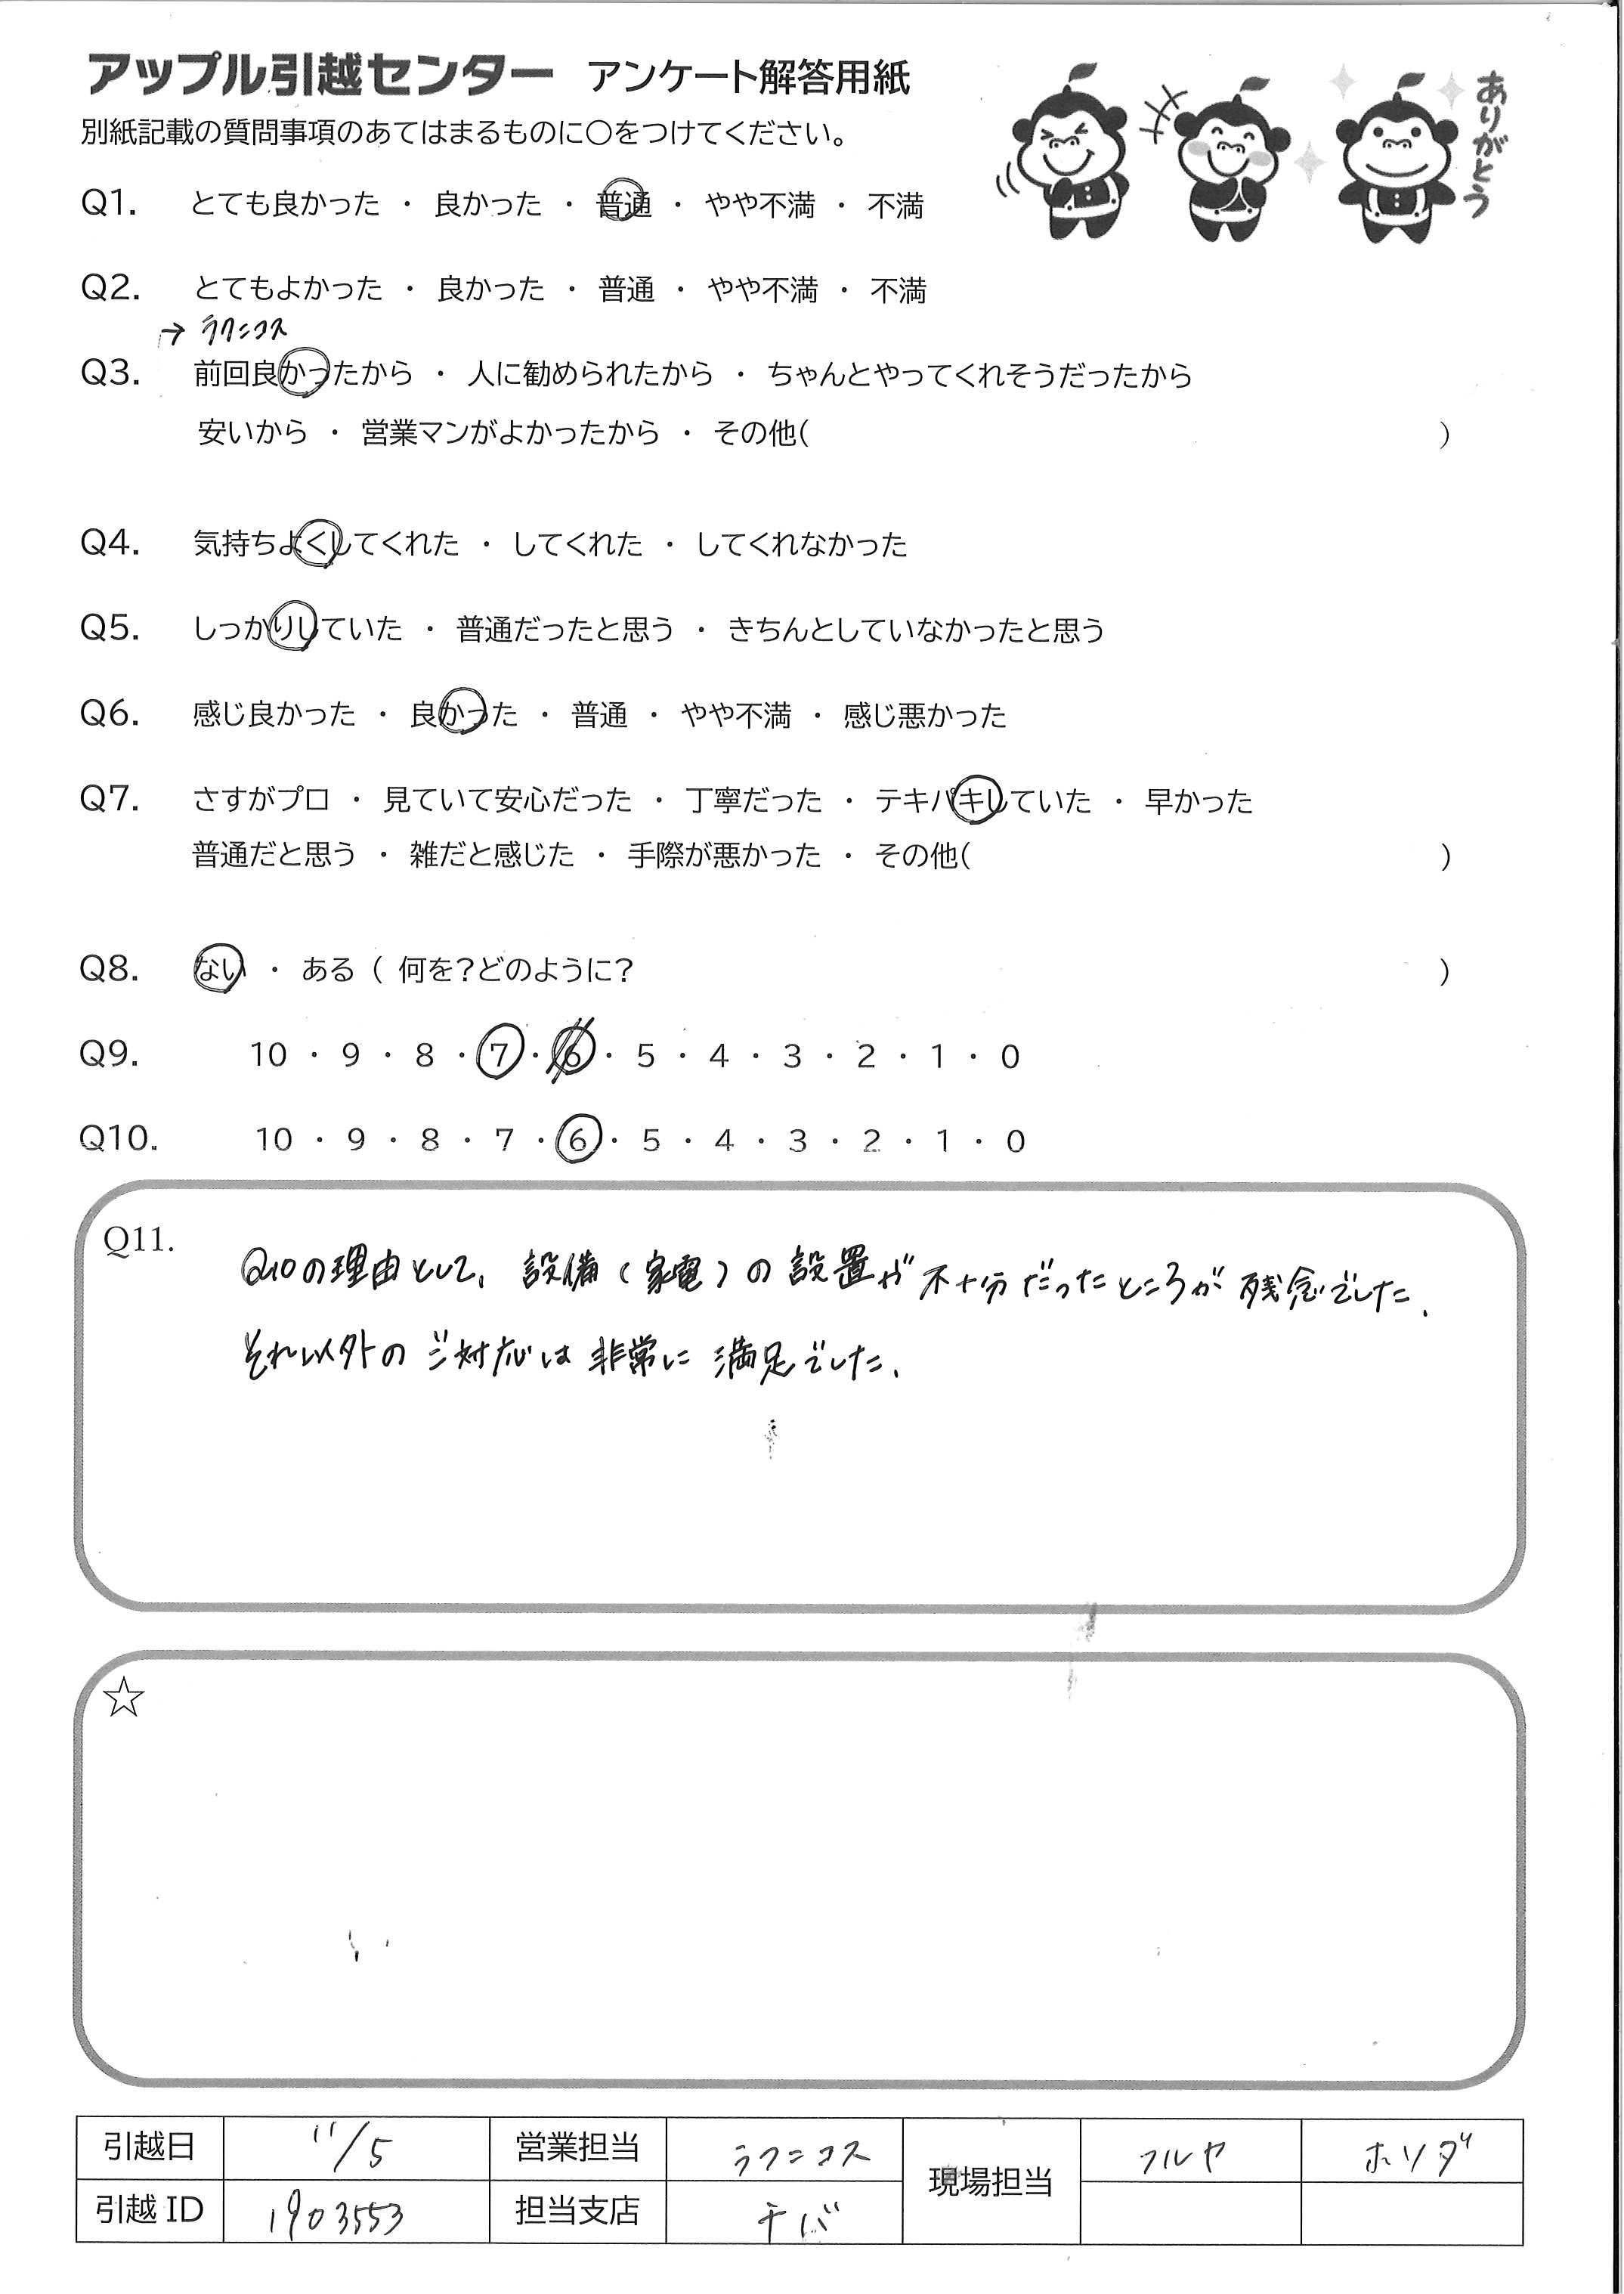 アップル引越センター アンケート解答用紙
別紙記載の質問事項のあてはまるものに○をつけてください。
ありがとう
Q1. とても良かった ・ 良かった ・ 普通 ・ やや不満 ・ 不満
Q2. とてもよかった ・ 良かった ・ 普通 ・ やや不満 ・ 不満
→ ラクニコス
Q3. 前回良かったから ・ 人に勧められたから ・ ちゃんとやってくれそうだったから
安いから ・ 営業マンがよかったから ・ その他( )
Q4. 気持ちよくしてくれた ・ してくれた ・ してくれなかった
Q5. しっかりしていた ・ 普通だったと思う ・ きちんとしていなかったと思う
Q6. 感じ良かった ・ 良かった ・ 普通 ・ やや不満 ・ 感じ悪かった
Q7. さすがプロ ・ 見ていて安心だった ・ 丁寧だった ・ テキパキしていた ・ 早かった
普通だと思う ・ 雑だと感じた ・ 手際が悪かった ・ その他( )
Q8. ない ・ ある ( 何を?どのように? )
Q9. 10 ・ 9 ・ 8 ・ 7 ・ 6 ・ 5 ・ 4 ・ 3 ・ 2 ・ 1 ・ 0
Q10. 10 ・ 9 ・ 8 ・ 7 ・ 6 ・ 5 ・ 4 ・ 3 ・ 2 ・ 1 ・ 0
Q11.
Q10の理由として、設備(家電)の設置が不十分だったところが残念でした.
それ以外のご対応は非常に満足でした.
☆
引越日 11/5 営業担当 ラクニコス 現場担当 フルヤ ホソダ
引越ID 1903553 担当支店 千バ